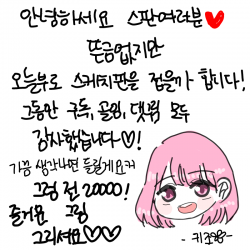 안녕하세요 스판여러분♥
뜬금없지만
오늘부로 스케치판을 접을까 합니다!
그동안 구독, 골임, 댓뤼 모두
감사했습니다♡!
가끔 생각나면 들릴게요ㅋ
그럼 전 20000!
즐거운 그림
그리셔요♡♡